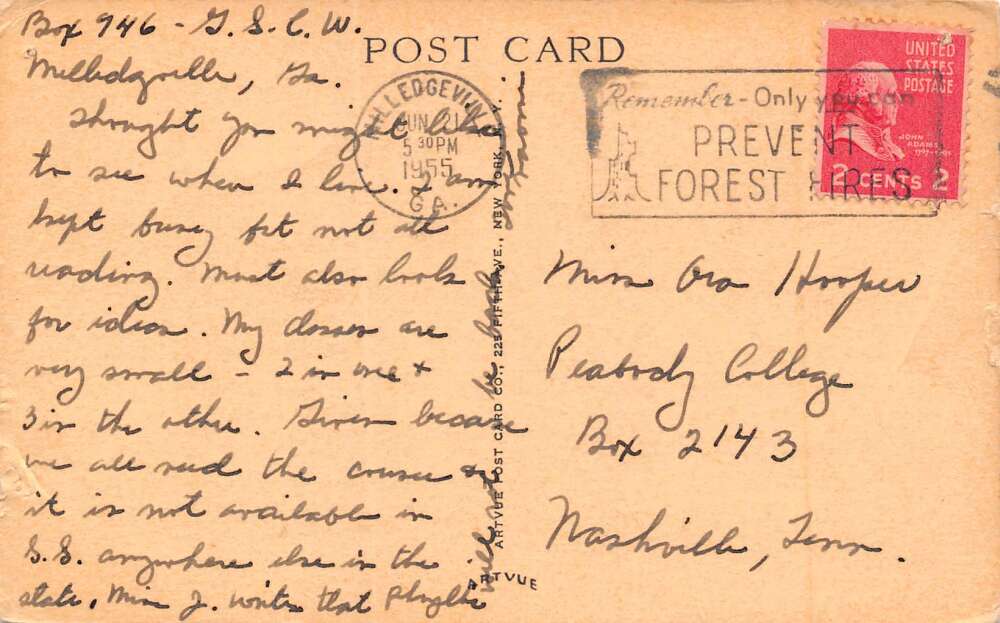 Box 946 - G. S. C. W.
Milledgeville, Ga.
Thought you might like
to see where I live. I am
kept busy but not all
reading. Must also look
for ideas. My classes are
very small - 2 in one &
3 in the other. Given because
we all need the course &
it is not available in
S.S. anywhere else in the
state. Miss J. writes that Phyllis
will not be back
POST CARD
MILLEDGEVILLE
JUN 21
5 30 PM
1955
GA.
Remember - Only you can
PREVENT
FOREST FIRES
UNITED
STATES
POSTAGE
JOHN
ADAMS
1797-1801
2 CENTS 2
ARTVUE POST CARD CO., 225 FIFTH AVE., NEW YORK, N. Y.
ARTVUE
Miss Ora Hooper
Peabody College
Box 2143
Nashville, Tenn.